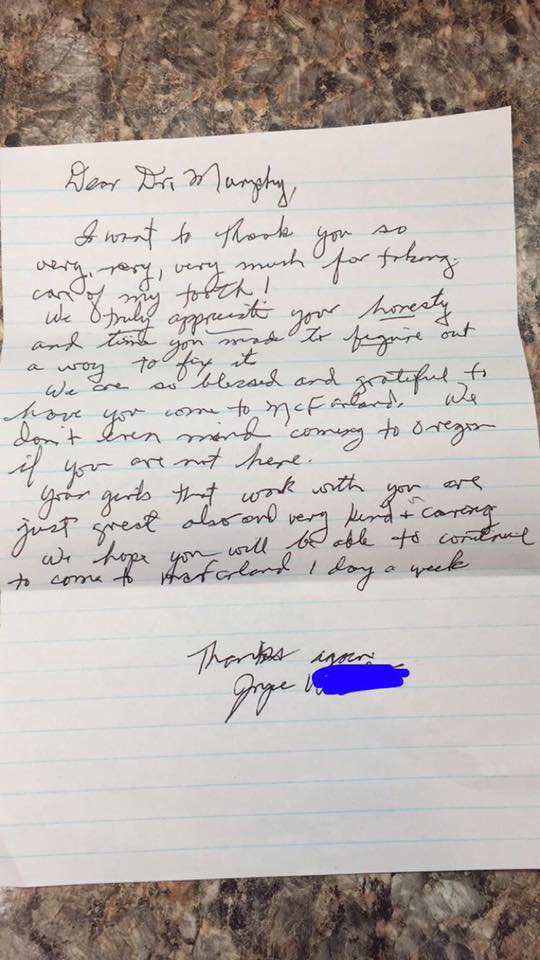 Dear Dr. Murphy,
I want to thank you so
very, very, very much for taking
care of my tooth!
We truly appreciate your honesty
and time you made to figure out
a way to fix it
We are so blessed and grateful to
have you come to McFarland. We
don't even mind coming to Oregon
if you are not here.
Your girls that work with you are
just great also and very kind + caring
We hope you will be able to continue
to come to McFarland 1 day a week
Thanks again
Joyce